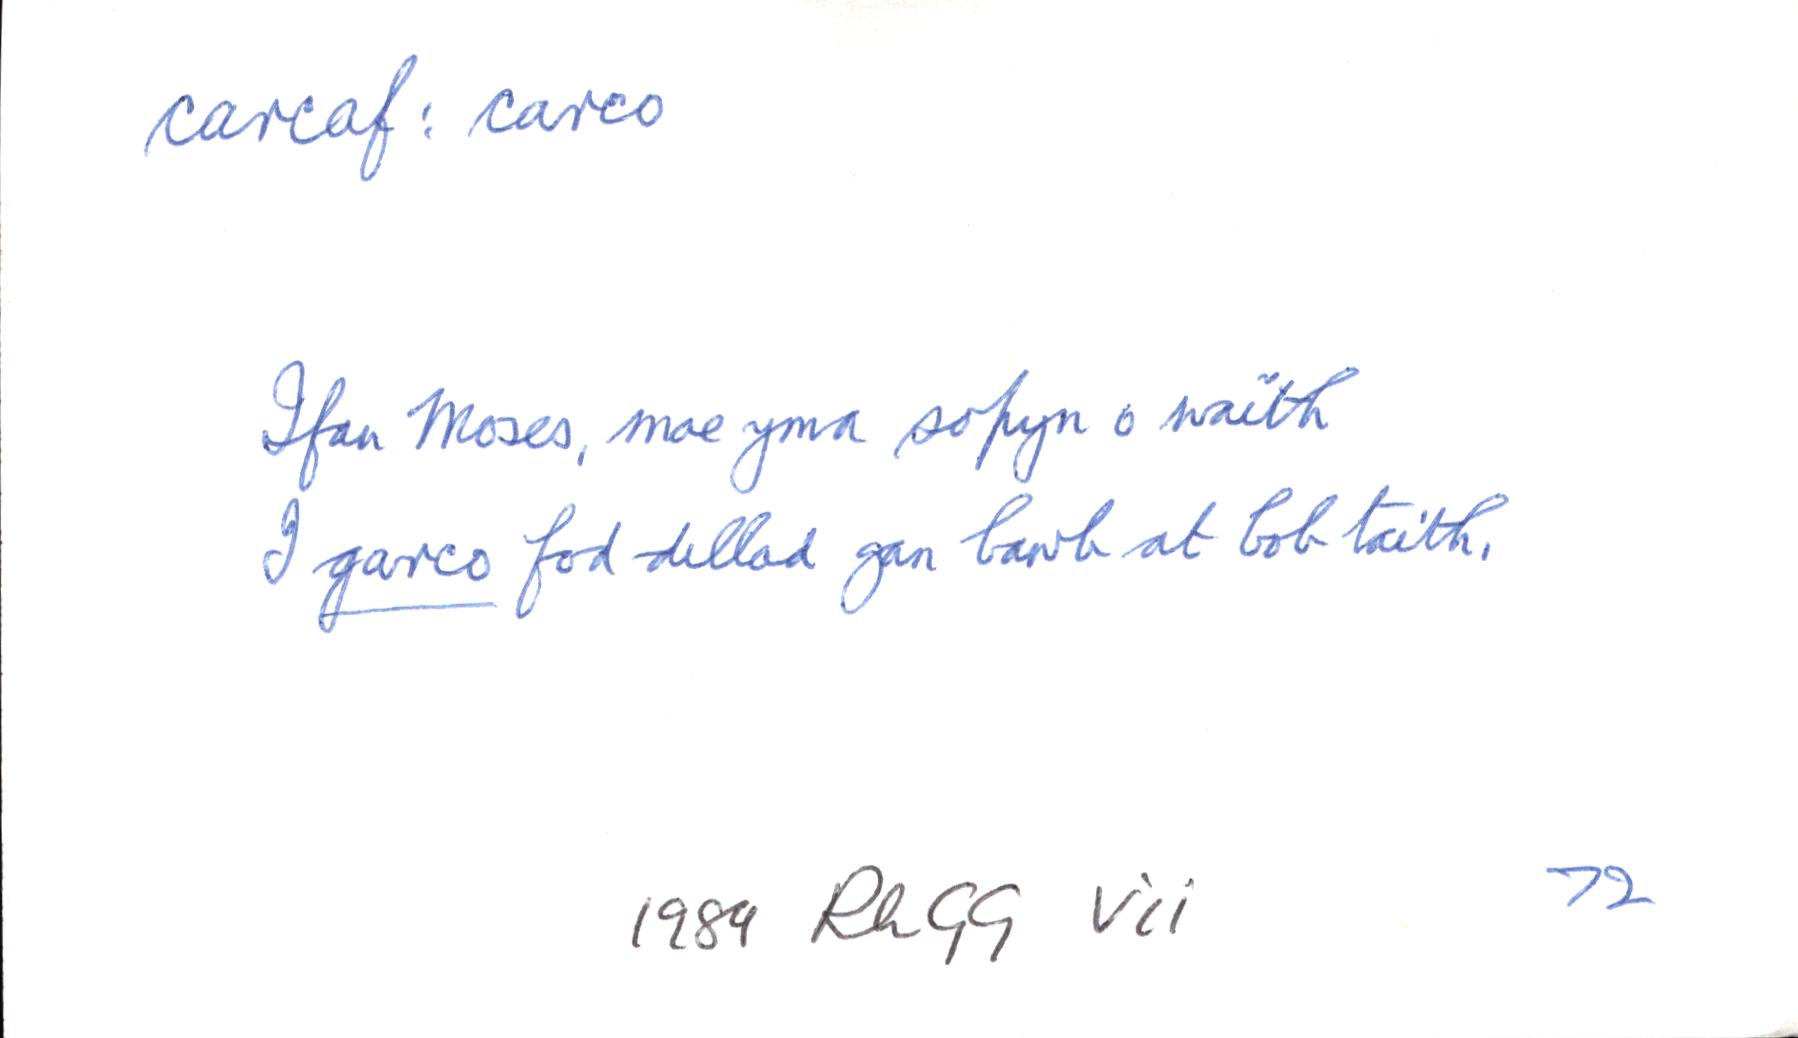 carcaf: carco
Ifan Moses, mae yma sopyn o waith
I garco fod dillad gan bawb at bob taith.
1989 RhGG vii 72